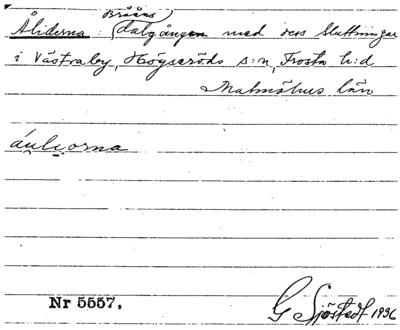 Ååns
Åliderna: dalgången med dess sluttningar
i Västraby, Högseröds s:n, Frosta h:d
Malmöhus län
Nr 5557.
G Sjöstedt 1936